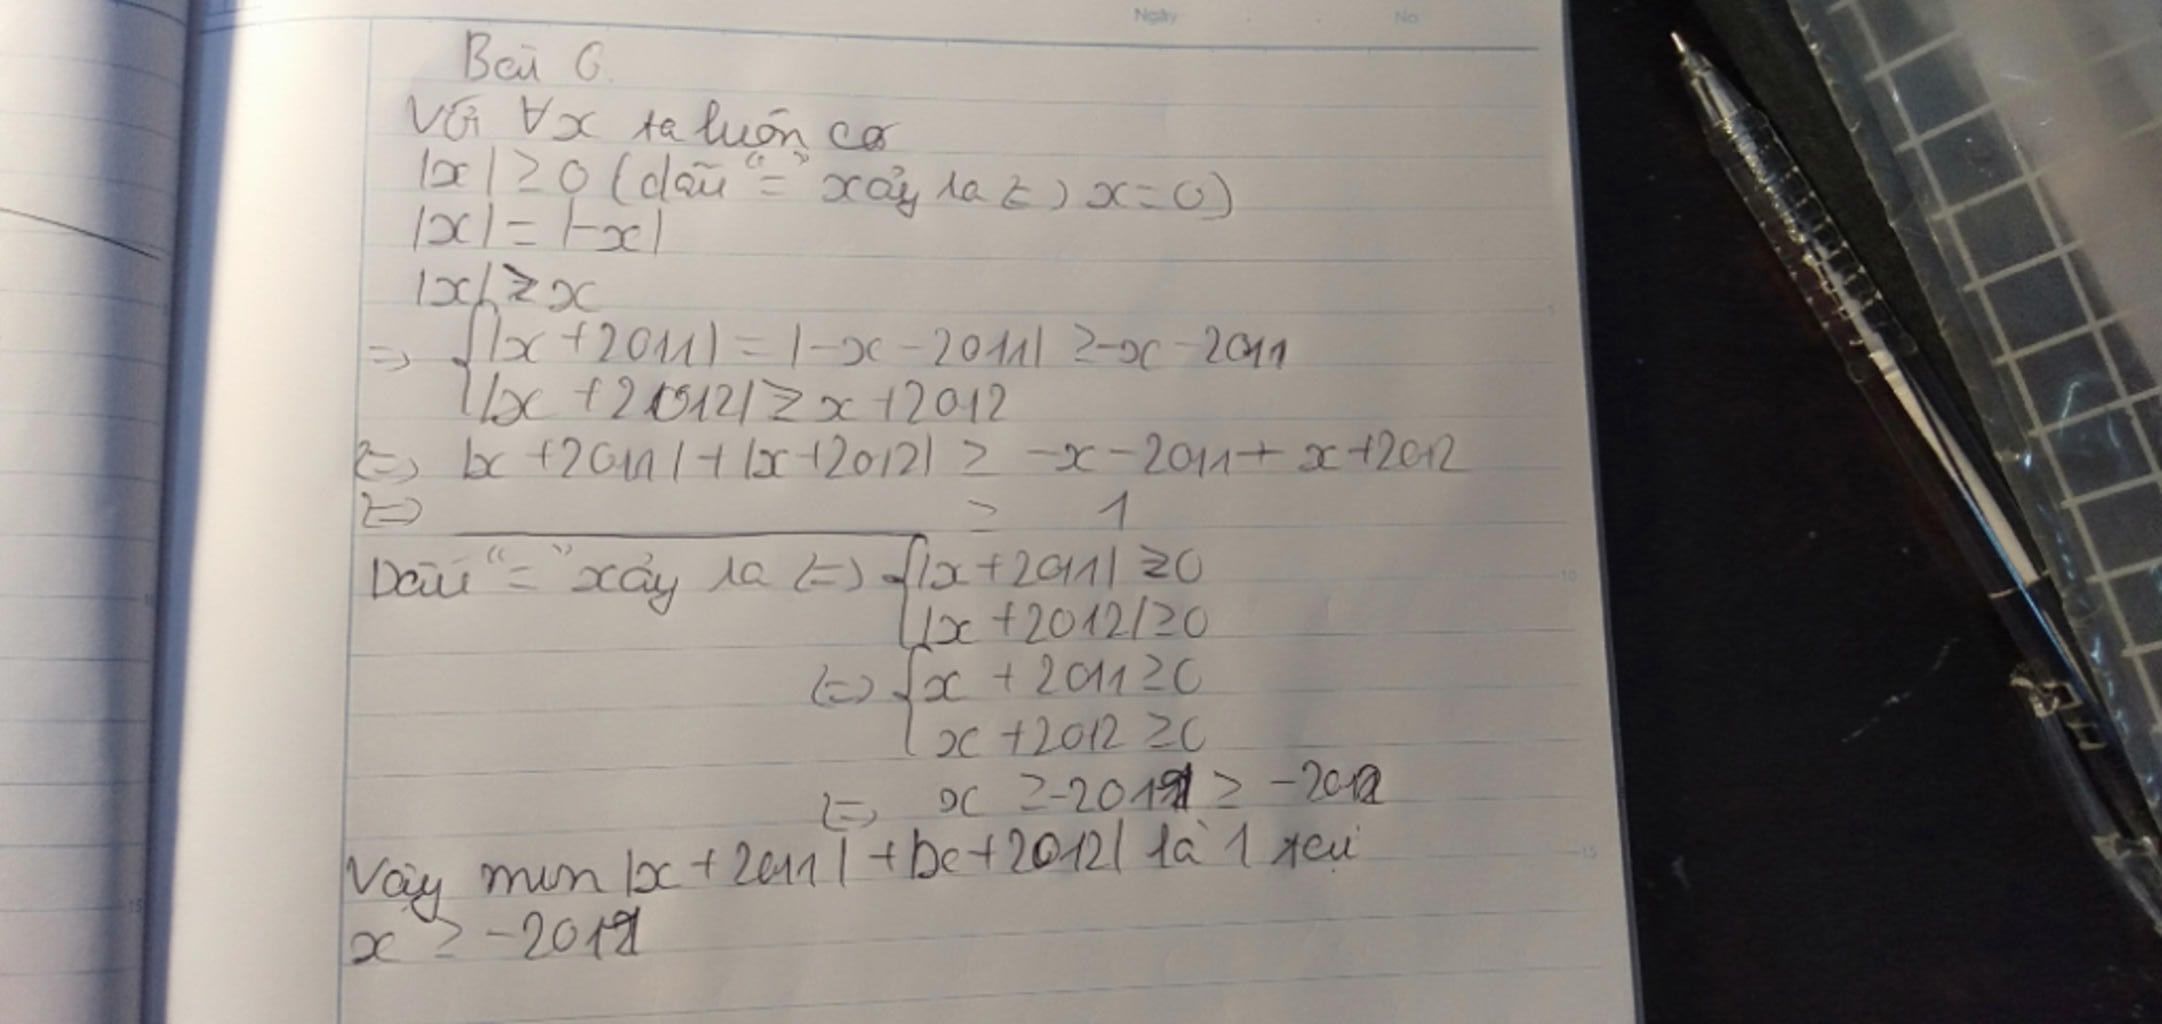 Ngày No
Bài 6.
Với ∀x ta luôn có
|x| ≥ 0 (dấu "=" xảy ra (=) x = 0)
|x| = |-x|
|x| ≥ x
=> { |x + 2011| = |-x - 2011| ≥ -x - 2011
|x + 2012| ≥ x + 2012
(=) |x + 2011| + |x + 2012| ≥ -x - 2011 + x + 2012
(=) ≥ 1
Dấu "=" xảy ra (=) { |x + 2011| ≥ 0
|x + 2012| ≥ 0
(=) { x + 2011 ≥ 0
x + 2012 ≥ 0
(=) x ≥ -2011 ≥ -2012
Vậy min |x + 2011| + |x + 2012| là 1 tại
x ≥ -2011